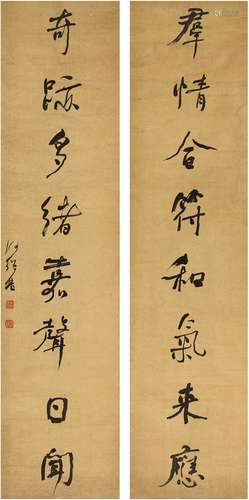 羣情合符和氣来應
奇蹟多緒嘉聲日聞
何紹基